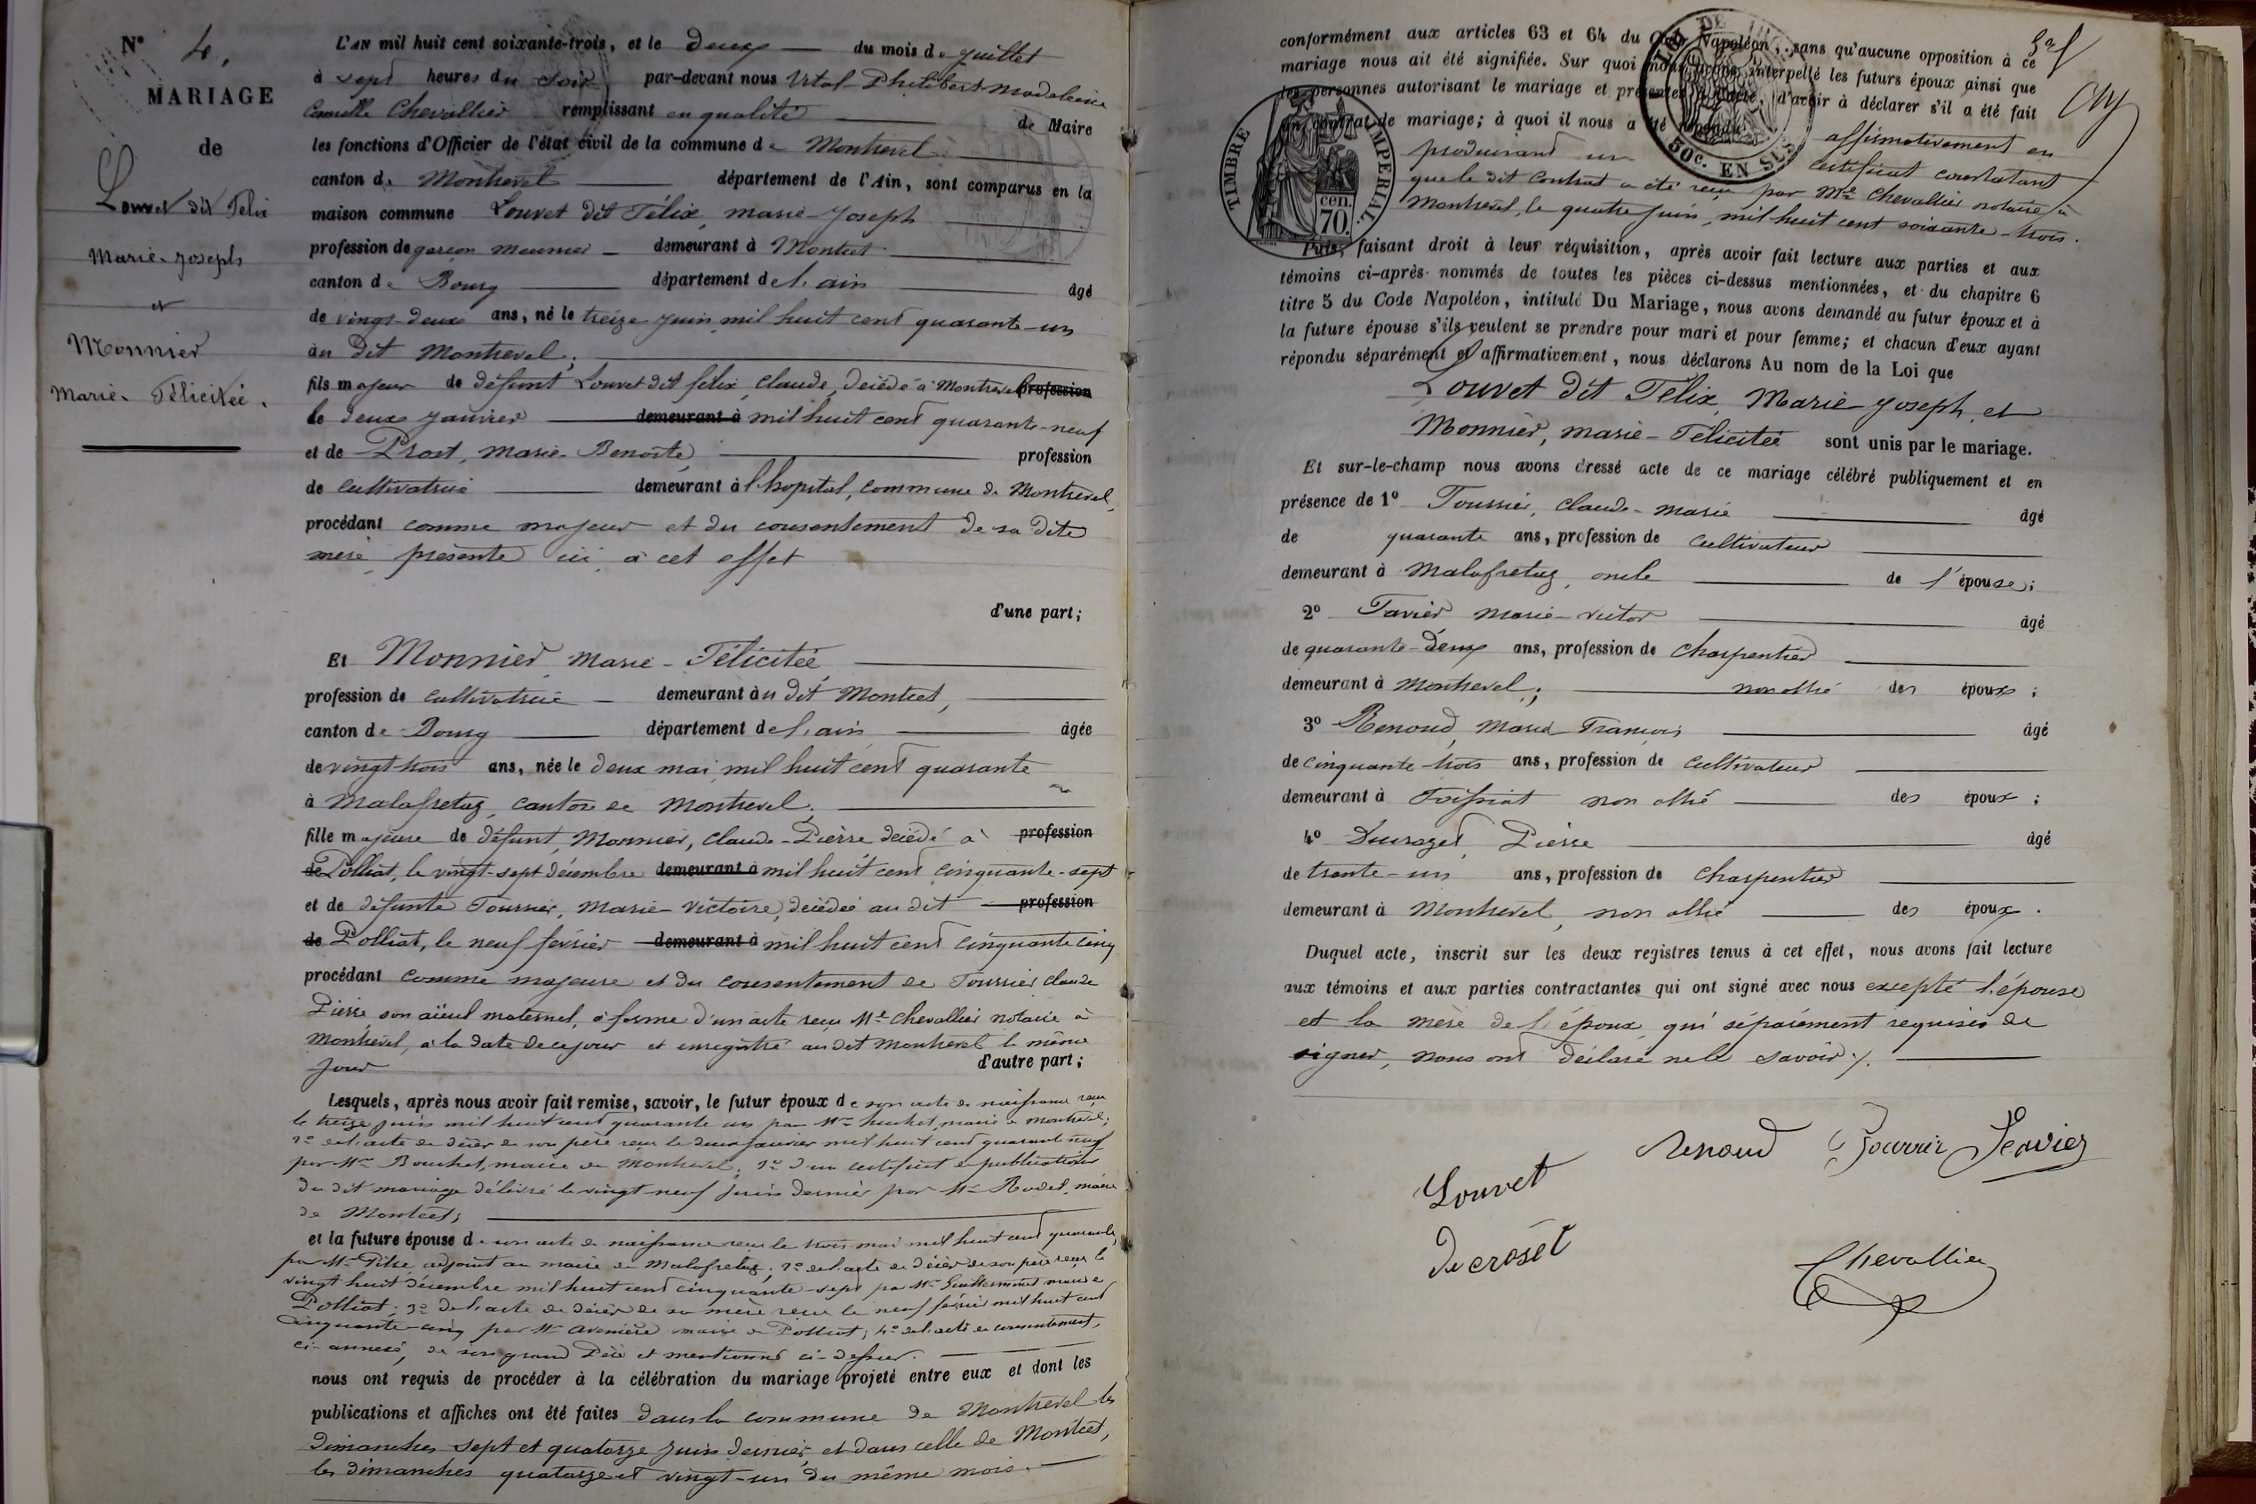 N° 4.
MARIAGE
de
Louvet dit Felix
Marie-Joseph
et
Monnier
Marie-Félicitée.
L'AN mil huit cent soixante-trois, et le deux du mois de juillet
à sept heures du soir par-devant nous Vital-Philibert-Madeleine
Camille Chevallier remplissant en qualité de Maire
les fonctions d'Officier de l'état civil de la commune de Montrevel
canton de Montrevel département de l'Ain, sont comparus en la
maison commune Louvet dit Félix, marie-Joseph
profession de garçon meunier demeurant à Montcet
canton de Bourg département de l'ain âgé
de vingt-deux ans, né le treize juin mil huit cent quarante-un
au dit Montrevel;
fils majeur de défunt Louvet dit felix, Claude, décédé à Montrevel profession
le deux janvier demeurant à mil huit cent quarante-neuf
et de Prost, Marie-Benoite, profession
de cultivatrice demeurant à l'hopital, commune de Montrevel,
procédant comme majeur et du consentement de sa dite
mère, présente ici, à cet effet
d'une part;
Et Monnier, Marie-Félicitée,
profession de cultivatrice demeurant au dit Montcet,
canton de Bourg département de l'ain âgée
de vingt trois ans, née le deux mai mil huit cent quarante
à Malafretaz, canton de Montrevel,
fille majeure de défunt, Monnier, Claude-Pierre décédé à profession
de Polliat, le vingt-sept décembre demeurant à mil huit cent cinquante-sept
et de défunte Tournier, Marie-Victoire, décédée au dit profession
de Polliat, le neuf février demeurant à mil huit cent cinquante cinq
procédant comme majeure et du consentement de Tournier Claude
Pierre son aïeul maternel, à forme d'un acte reçu Me Chevallier notaire à
Montrevel, à la date de ce jour et enregistré au dit Montrevel le même
jour d'autre part;
Lesquels, après nous avoir fait remise, savoir, le futur époux de son acte de naissance reçu
le treize juin mil huit cent quarante un par Mr maire à Montrevel;
2° de l'acte de décès de son père reçu le deux janvier mil huit cent quarante neuf
par Mr Bouchet, maire de Montrevel; 3° d'un certificat de publications
du dit mariage délivré le vingt-neuf juin dernier par Mr maire
de Montcet;
et la future épouse de son acte de naissance reçu le trois mai mil huit cent quarante,
par Mr Pitre, adjoint au maire de Malafretaz; 2° de l'acte de décès de son père reçu le
vingt huit décembre mil huit cent cinquante-sept par Mr Guillermin maire de
Polliat; 3° de l'acte de décès de sa mère reçu le neuf février mil huit cent
cinquante-cinq par Mr maire de Polliat; 4° de l'acte de consentement,
ci-annexé, de son grand Père et mentionné ci-dessus.
nous ont requis de procéder à la célébration du mariage projeté entre eux et dont les
publications et affiches ont été faites dans la commune de Montrevel les
dimanches sept et quatorze juin dernier, et dans celle de Montcet,
les dimanches quatorze et vingt-un du même mois.
conformément aux articles 63 et 64 du Code Napoléon, sans qu'aucune opposition à ce
mariage nous ait été signifiée. Sur quoi nous avons interpellé les futurs époux ainsi que
les personnes autorisant le mariage et présentes à l'acte, d'avoir à déclarer s'il a été fait
un contrat de mariage; à quoi il nous a été répondu affirmativement en
produisant un certificat constatant
que le dit contrat a été reçu par Me Chevallier notaire à
Montrevel, le quatre juin, mil huit cent soixante-trois.
TIMBRE IMPERIAL
cen. 70.
50c. EN SUS
Puis, faisant droit à leur réquisition, après avoir fait lecture aux parties et aux
témoins ci-après nommés de toutes les pièces ci-dessus mentionnées, et du chapitre 6
titre 5 du Code Napoléon, intitulé Du Mariage, nous avons demandé au futur époux et à
la future épouse s'ils veulent se prendre pour mari et pour femme; et chacun d'eux ayant
répondu séparément et affirmativement, nous déclarons Au nom de la Loi que
Louvet dit Félix, Marie-Joseph, et
Monnier, marie-Félicitée sont unis par le mariage.
Et sur-le-champ nous avons dressé acte de ce mariage célébré publiquement et en
présence de 1° Tournier, Claude-Marie âgé
de quarante ans, profession de cultivateur
demeurant à Malafretaz, oncle de l'épouse;
2° Favier Marie-Victor âgé
de quarante-deux ans, profession de charpentier
demeurant à Montrevel; non allié des époux;
3° Renoud, Marie François âgé
de cinquante-trois ans, profession de cultivateur
demeurant à Foissiat non allié des époux;
4° Ducrozet, Pierre âgé
de trente-un ans, profession de charpentier
demeurant à Montrevel, non allié des époux.
Duquel acte, inscrit sur les deux registres tenus à cet effet, nous avons fait lecture
aux témoins et aux parties contractantes qui ont signé avec nous excepté l'épouse
et la mère de l'époux qui séparément requises de
signer, nous ont déclaré ne le savoir ./.
renoud
Louvet
decroset
Chevallier